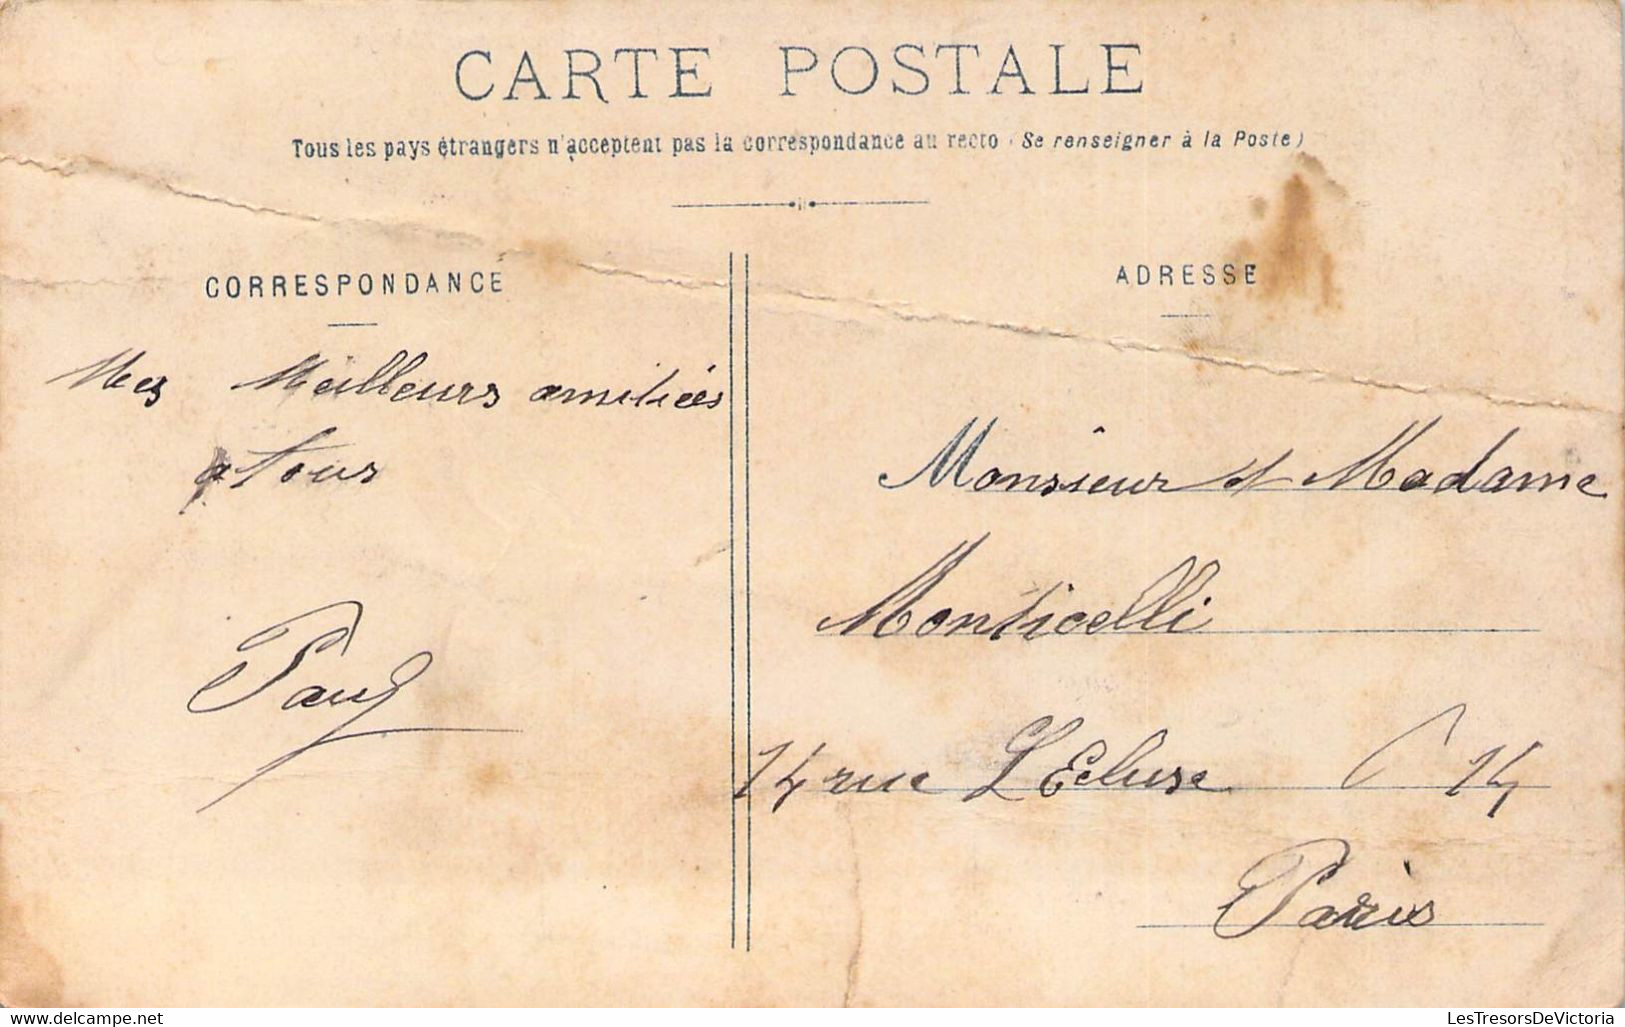 CARTE POSTALE
Tous les pays étrangers n'acceptent pas la correspondance au recto (Se renseigner à la Poste)
CORRESPONDANCE
Mes Meilleurs amitiées
a tous
Paul
ADRESSE
Monsieur et Madame
Monticelli
14 rue L'Ecluse 14
Paris
www.delcampe.net
LesTresorsDeVictoria